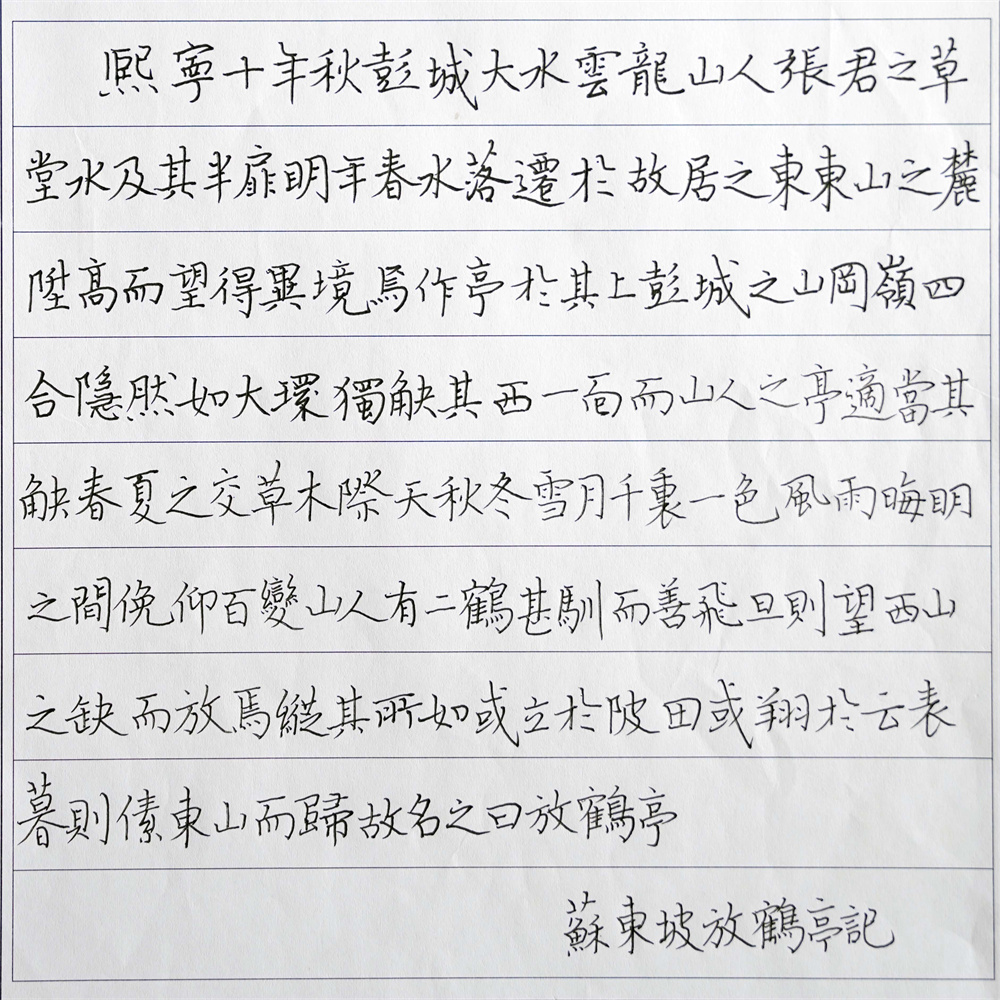 熙寧十年秋彭城大水雲龍山人張君之草
堂水及其半扉明年春水落遷於故居之東東山之麓
陞高而望得異境焉作亭於其上彭城之山岡嶺四
合隱然如大環獨觖其西一面而山人之亭適當其
觖春夏之交草木際天秋冬雪月千裏一色風雨晦明
之間俛仰百變山人有二鶴甚馴而善飛旦則望西山
之缺而放焉縱其所如或立於陂田或翔於云表
暮則傃東山而歸故名之曰放鶴亭
蘇東坡放鶴亭記